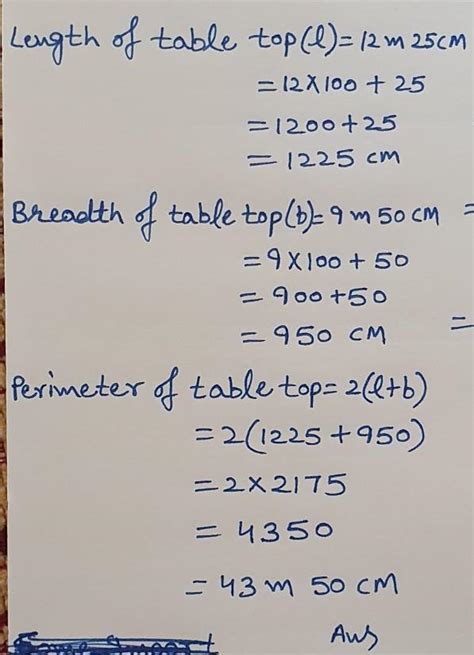 Length of table top(l)= 12 m 25 cm
= 12 × 100 + 25
= 1200 + 25
= 1225 cm
Breadth of table top(b)= 9 m 50 cm =
= 9 × 100 + 50
= 900 + 50
= 950 cm =
Perimeter of table top = 2(l+b)
= 2(1225 + 950)
= 2 × 2175
= 4350
= 43 m 50 cm
Ans